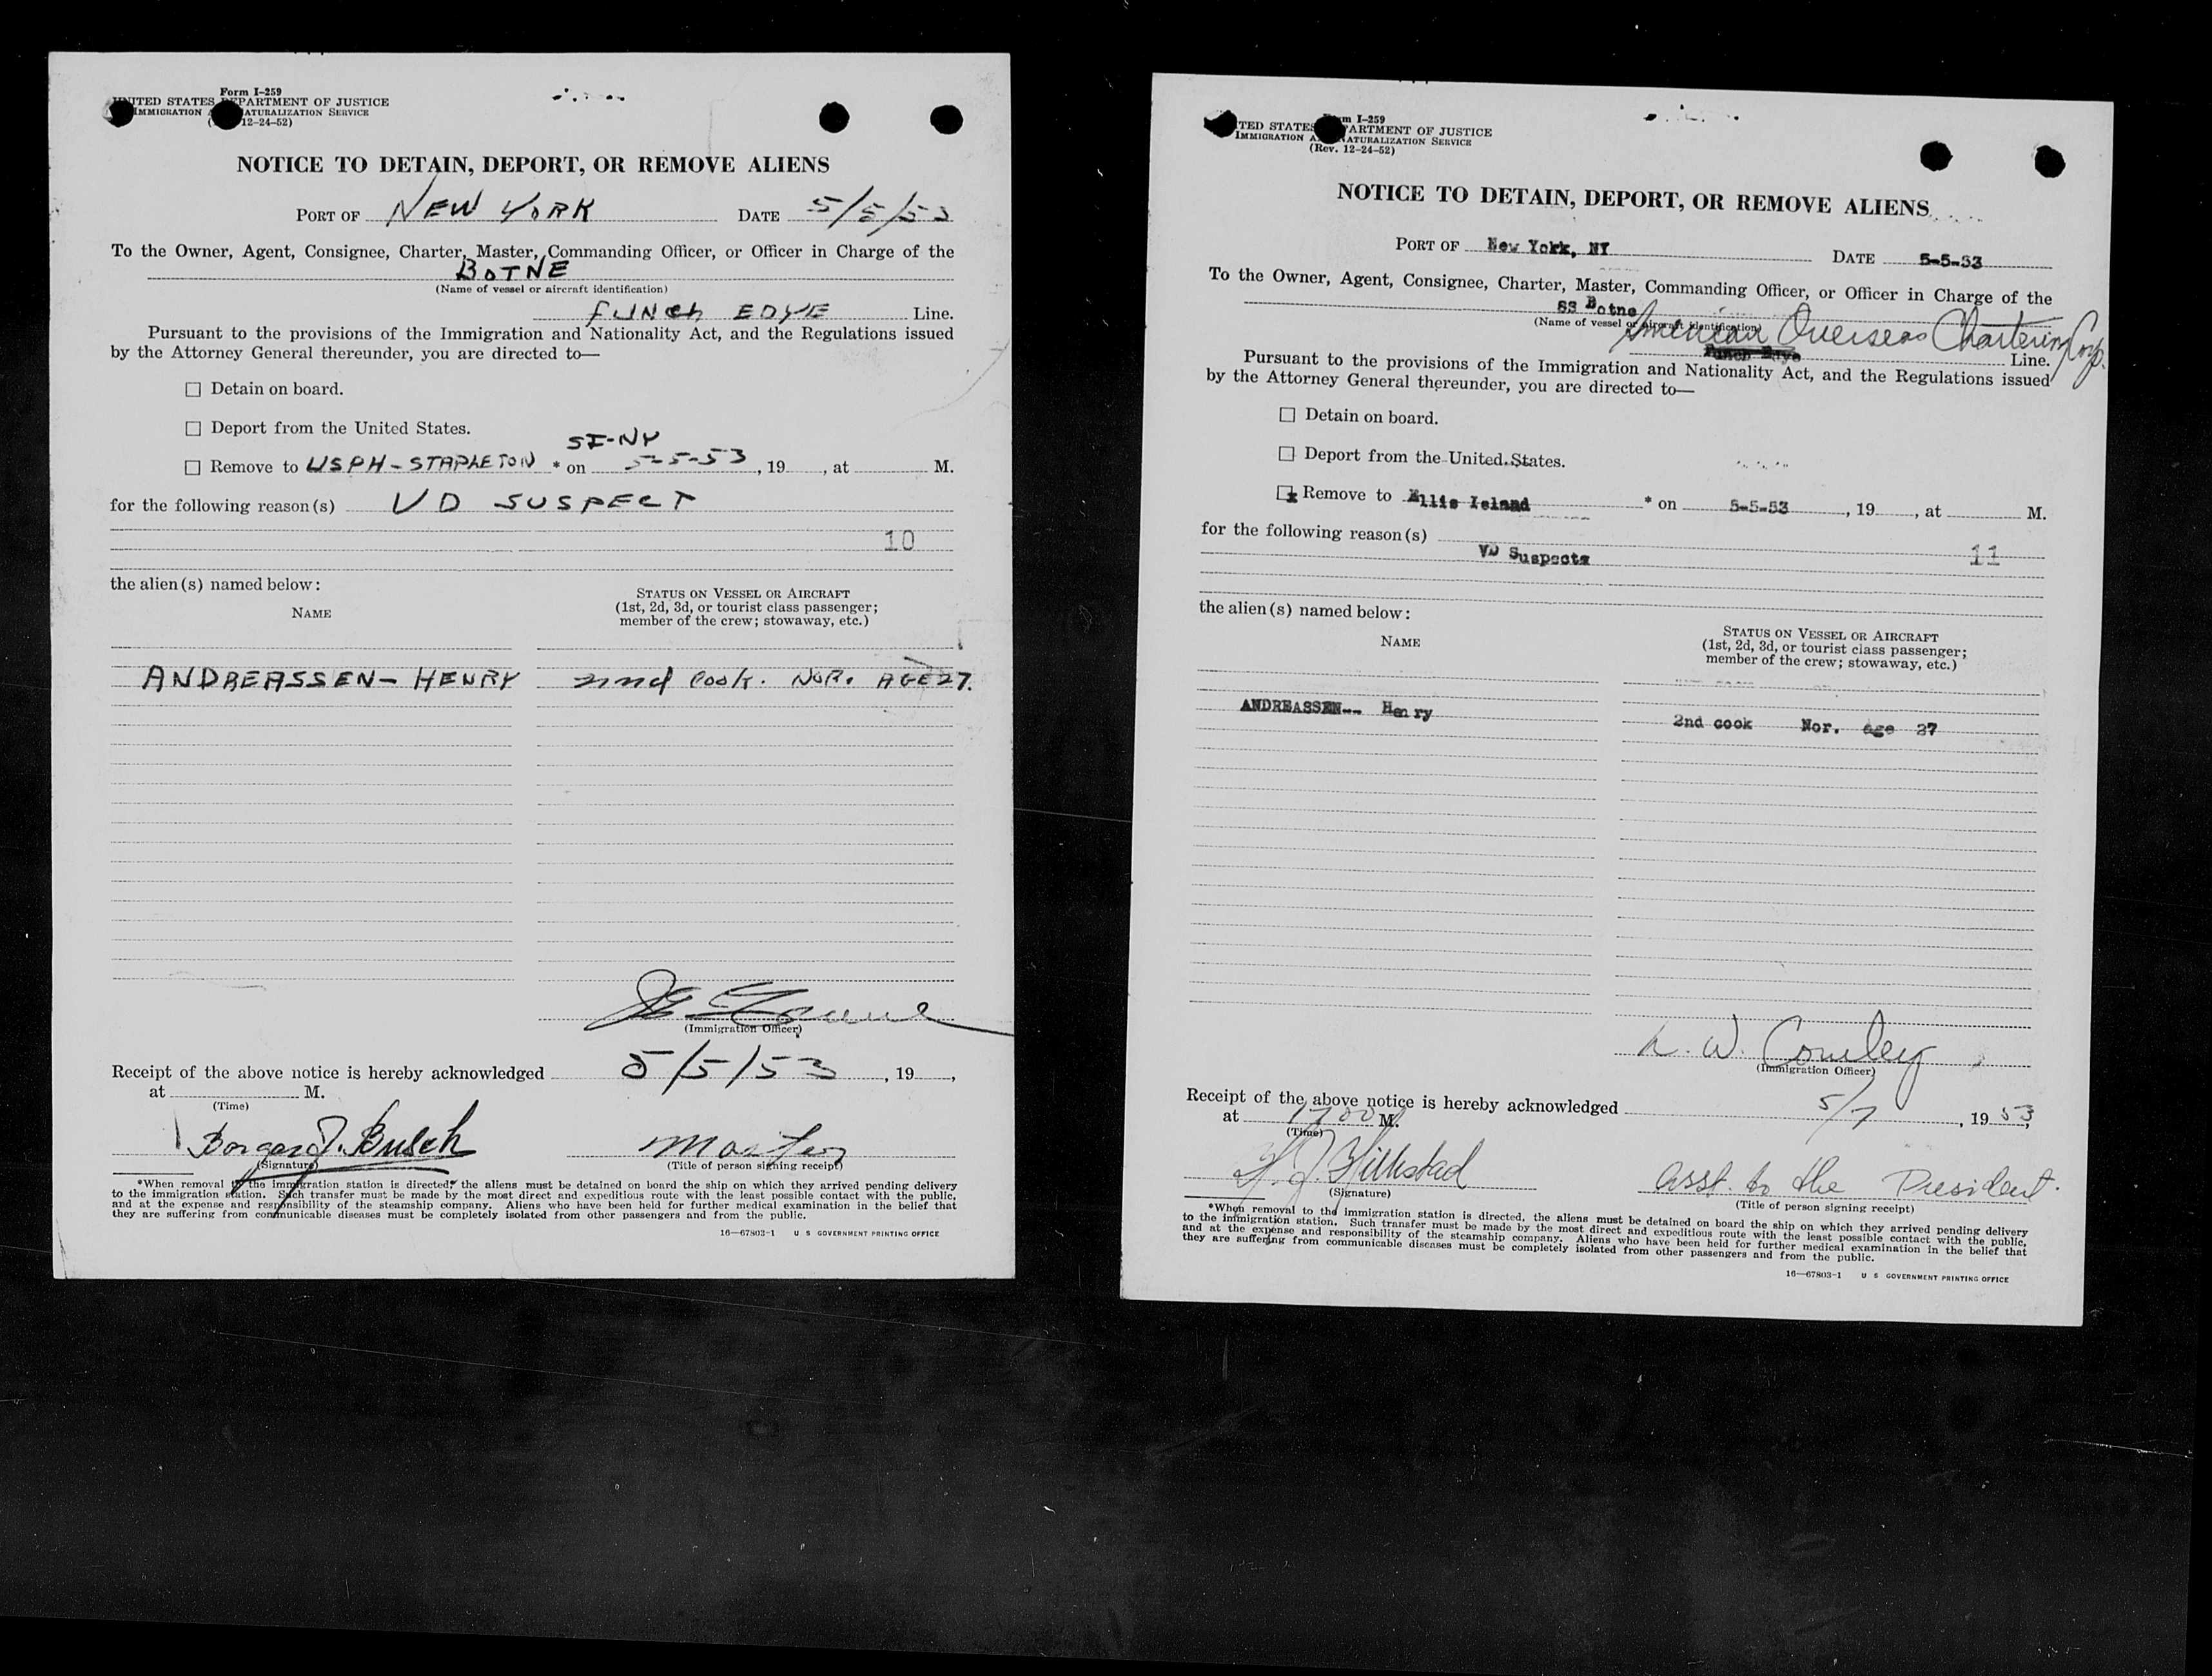 Form I-259
UNITED STATES DEPARTMENT OF JUSTICE
IMMIGRATION NATURALIZATION SERVICE
12-24-52)
NOTICE TO DETAIN, DEPORT, OR REMOVE ALIENS
PORT OF NEW YORK DATE 5/5/53
To the Owner, Agent, Consignee, Charter, Master, Commanding Officer, or Officer in Charge of the
BOTNE
(Name of vessel or aircraft identification)
FUNCH EDYE Line.
Pursuant to the provisions of the Immigration and Nationality Act, and the Regulations issued
by the Attorney General thereunder, you are directed to—
☐ Detain on board.
☐ Deport from the United States.
SI-NY
☐ Remove to USPH-STAPLETON * on 5-5-53, 19, at M.
for the following reason(s) VD SUSPECT
10
the alien(s) named below:
NAME
STATUS ON VESSEL OR AIRCRAFT
(1st, 2d, 3d, or tourist class passenger;
member of the crew; stowaway, etc.)
ANDREASSEN- HENRY 2nd cook. NOR. AGE 27.
(Immigration Officer)
Receipt of the above notice is hereby acknowledged 5/5/53, 19,
at M.
(Time)
J. Busch Master
(Signature) (Title of person signing receipt)
*When removal to the immigration station is directed, the aliens must be detained on board the ship on which they arrived pending delivery
to the immigration station. Such transfer must be made by the most direct and expeditious route with the least possible contact with the public,
and at the expense and responsibility of the steamship company. Aliens who have been held for further medical examination in the belief that
they are suffering from communicable diseases must be completely isolated from other passengers and from the public.
16—67803-1 U S GOVERNMENT PRINTING OFFICE
Form I-259
UNITED STATES DEPARTMENT OF JUSTICE
IMMIGRATION AND NATURALIZATION SERVICE
(Rev. 12-24-52)
NOTICE TO DETAIN, DEPORT, OR REMOVE ALIENS
PORT OF New York, NY DATE 5-5-53
To the Owner, Agent, Consignee, Charter, Master, Commanding Officer, or Officer in Charge of the
SS Botne
(Name of vessel or aircraft identification)
American Overseas Chartering Corp.
Funch Edye Line.
Pursuant to the provisions of the Immigration and Nationality Act, and the Regulations issued
by the Attorney General thereunder, you are directed to—
☐ Detain on board.
☐ Deport from the United States.
☒ Remove to Ellis Island * on 5-5-53, 19, at M.
for the following reason(s)
VD Suspects
11
the alien(s) named below:
NAME
STATUS ON VESSEL OR AIRCRAFT
(1st, 2d, 3d, or tourist class passenger;
member of the crew; stowaway, etc.)
ANDREASSEN-- Henry 2nd cook Nor. age 27
W. Comley
(Immigration Officer)
Receipt of the above notice is hereby acknowledged 5/7, 19 53,
at 1700 M.
(Time)
Asst. to the President.
(Signature) (Title of person signing receipt)
*When removal to the immigration station is directed, the aliens must be detained on board the ship on which they arrived pending delivery
to the immigration station. Such transfer must be made by the most direct and expeditious route with the least possible contact with the public,
and at the expense and responsibility of the steamship company. Aliens who have been held for further medical examination in the belief that
they are suffering from communicable diseases must be completely isolated from other passengers and from the public.
16—67803-1 U S GOVERNMENT PRINTING OFFICE